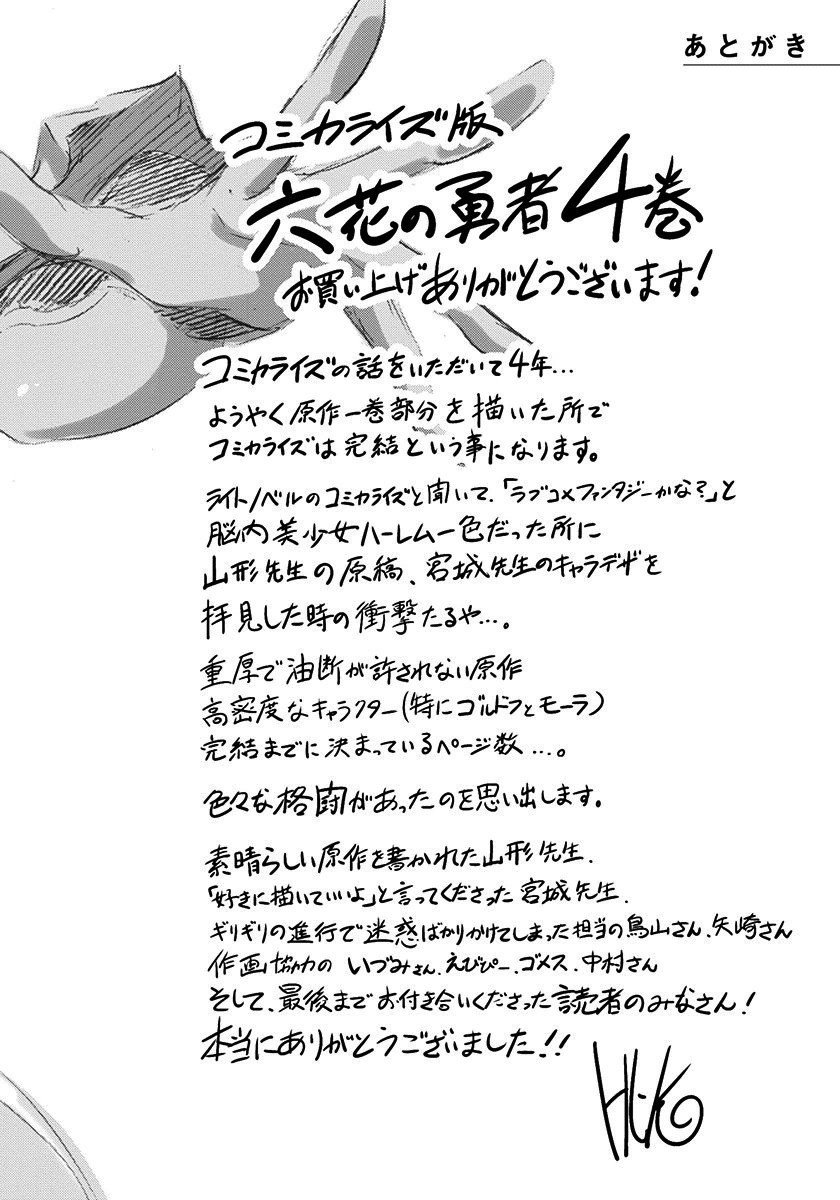 あとがき
コミカライズ版
六花の勇者4巻
お買い上げありがとうございます!
コミカライズの話をいただいて4年…
ようやく原作一巻部分を描いた所で
コミカライズは完結という事になります。
ライトノベルのコミカライズと聞いて、「ラブコメファンタジーかな?」と
脳内美少女ハーレム一色だった所に
山形先生の原稿、宮城先生のキャラデザを
拝見した時の衝撃たるや…。
重厚で油断が許されない原作
高密度なキャラクター(特にゴルドフとモーラ)
完結までに決まっているページ数…。
色々な格闘があったのを思い出します。
素晴らしい原作を書かれた山形先生、
「好きに描いていいよ」と言ってくださった宮城先生、
ギリギリの進行で迷惑ばかりかけてしまった担当の鳥山さん、矢崎さん
作画協力の いづみさん、えびぴー、ゴメス、中村さん
そして、最後までお付き合いくださった読者のみなさん!
本当にありがとうございました!!